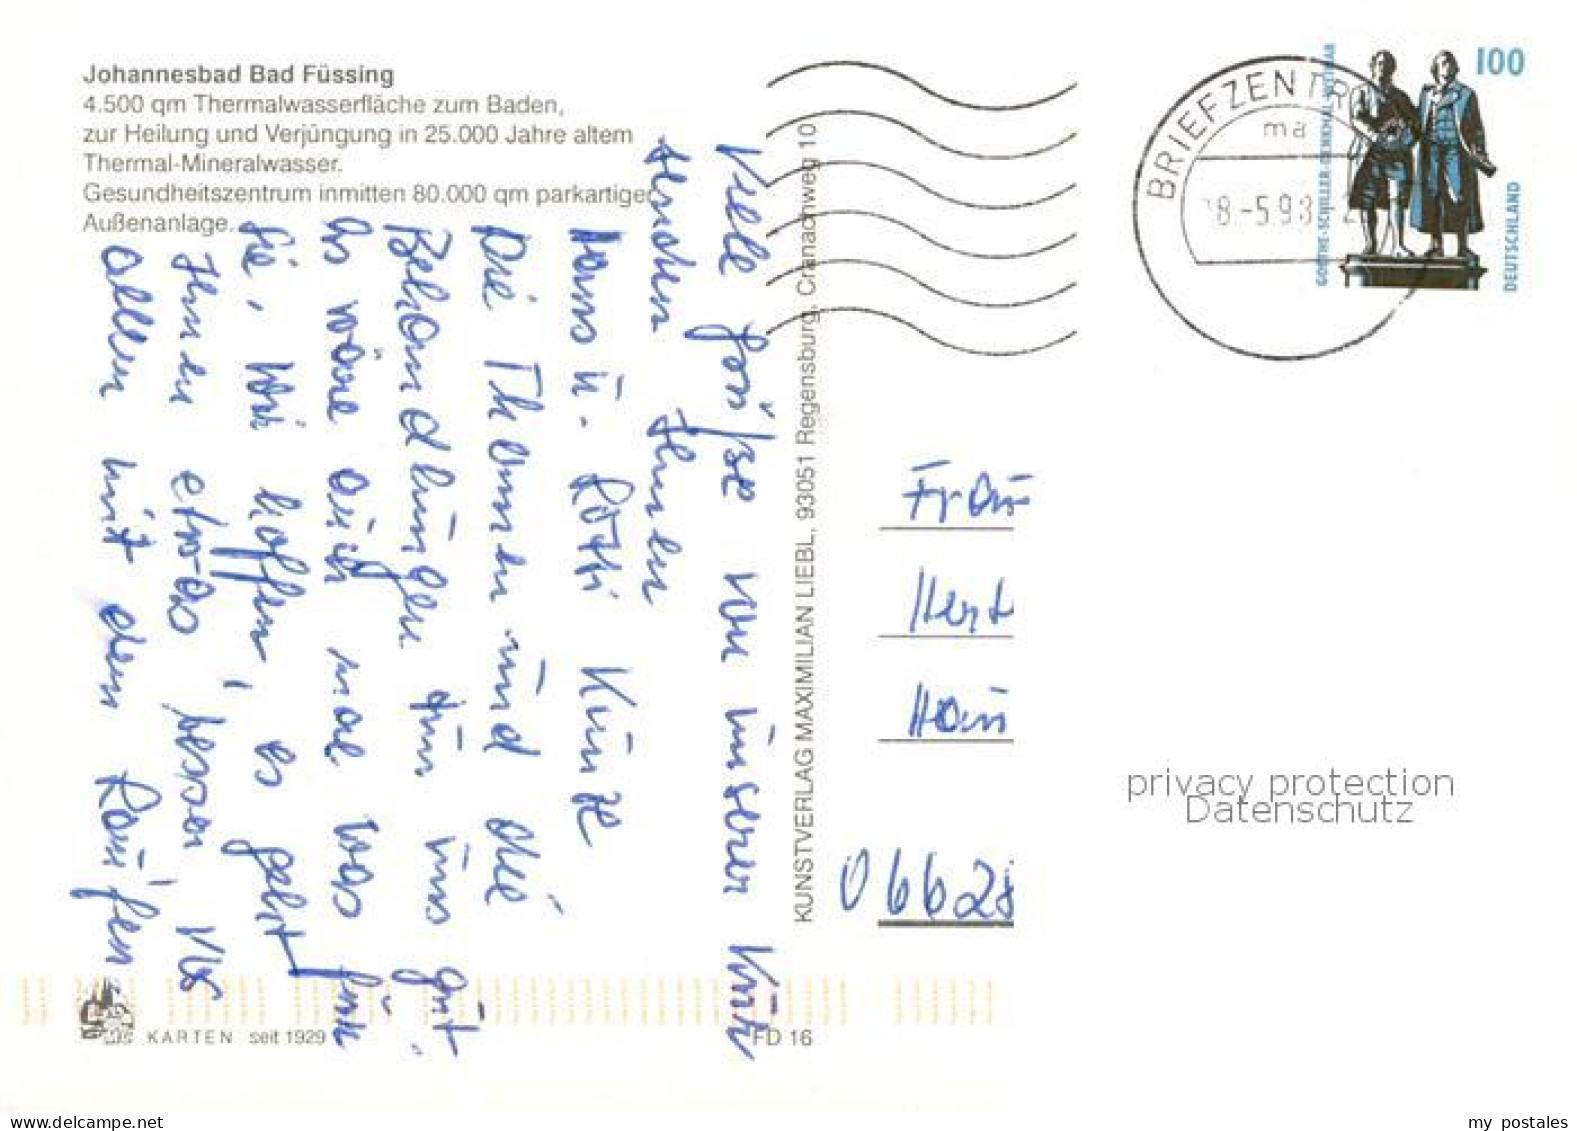 Johannesbad Bad Füssing
4.500 qm Thermalwasserfläche zum Baden,
zur Heilung und Verjüngung in 25.000 Jahre altem
Thermal-Mineralwasser.
Gesundheitszentrum inmitten 80.000 qm parkartiger
Außenanlage.
Viele Grüße von unserer Kur
senden Ihnen
Hans u. Lotti Kunze
Die Thermen und die
Behandlungen tun uns gut.
Es wäre auch mal was für
Sie, Wir hoffen, es geht
Ihnen etwas besser
allem mit dem Laufen.
KUNSTVERLAG MAXIMILIAN LIEBL, 93051 Regensburg, Cranachweg 10
BRIEFZENTR
ma
8.-5.98
GOETHE-SCHILLER-DENKMAL WEIMAR
100
DEUTSCHLAND
Frau
Hert
Hau
06628
privacy protection
Datenschutz
KARTEN seit 1929
FD 16
my postales
delcampe.net